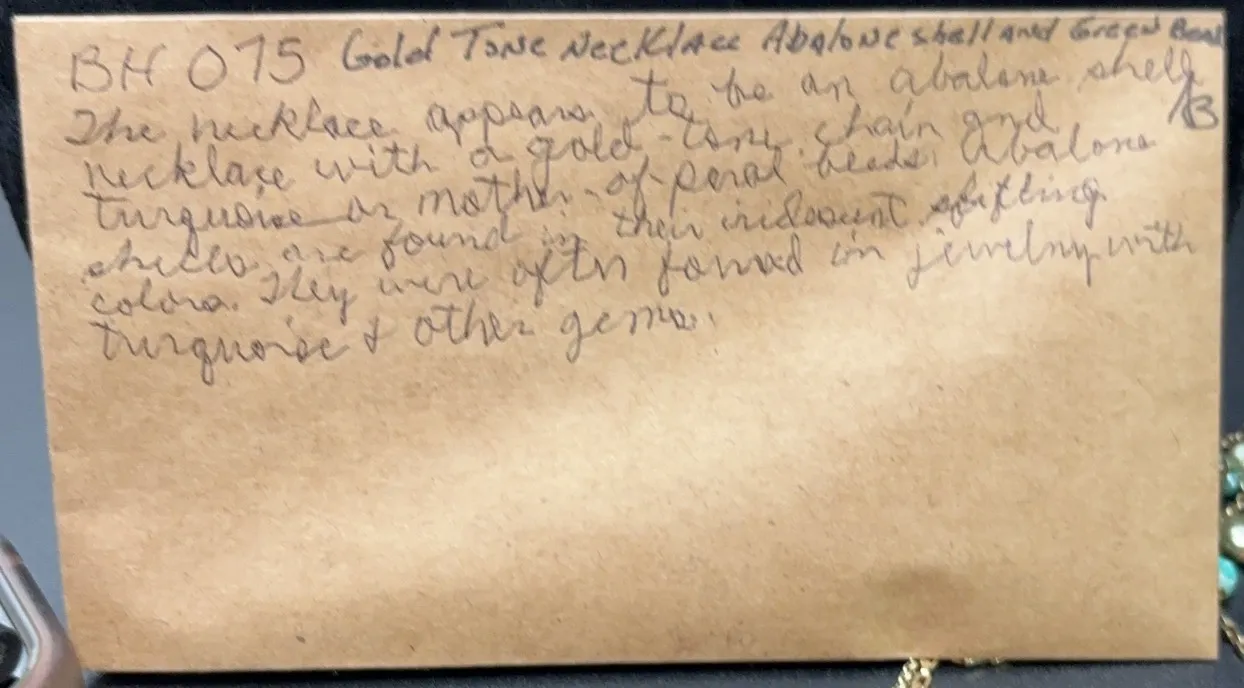 BH 075 Gold Tone Necklace Abalone shell and Green Bead
The necklace appears to be an abalone shell
13
necklace with a gold-tone chain and
turquoise or mother-of-peral beads. Abalone
shells are found in their iridescent shifting
colors. They were often formad in jewelry with
turquoise & other gems.